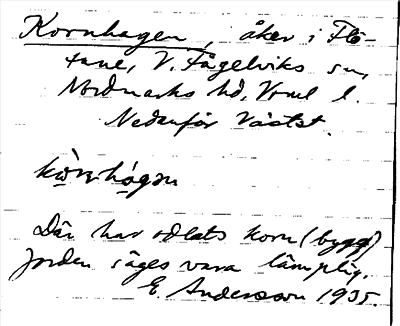 Kornhagen, åker i Flö-
tane, V. Fågelviks sn,
Nordmarks hd, Vrml l.
Nedanför
kòrnhágən
Där har odlats korn (bygg)
Jorden säges vara lämplig.
E. Andersson 1935.